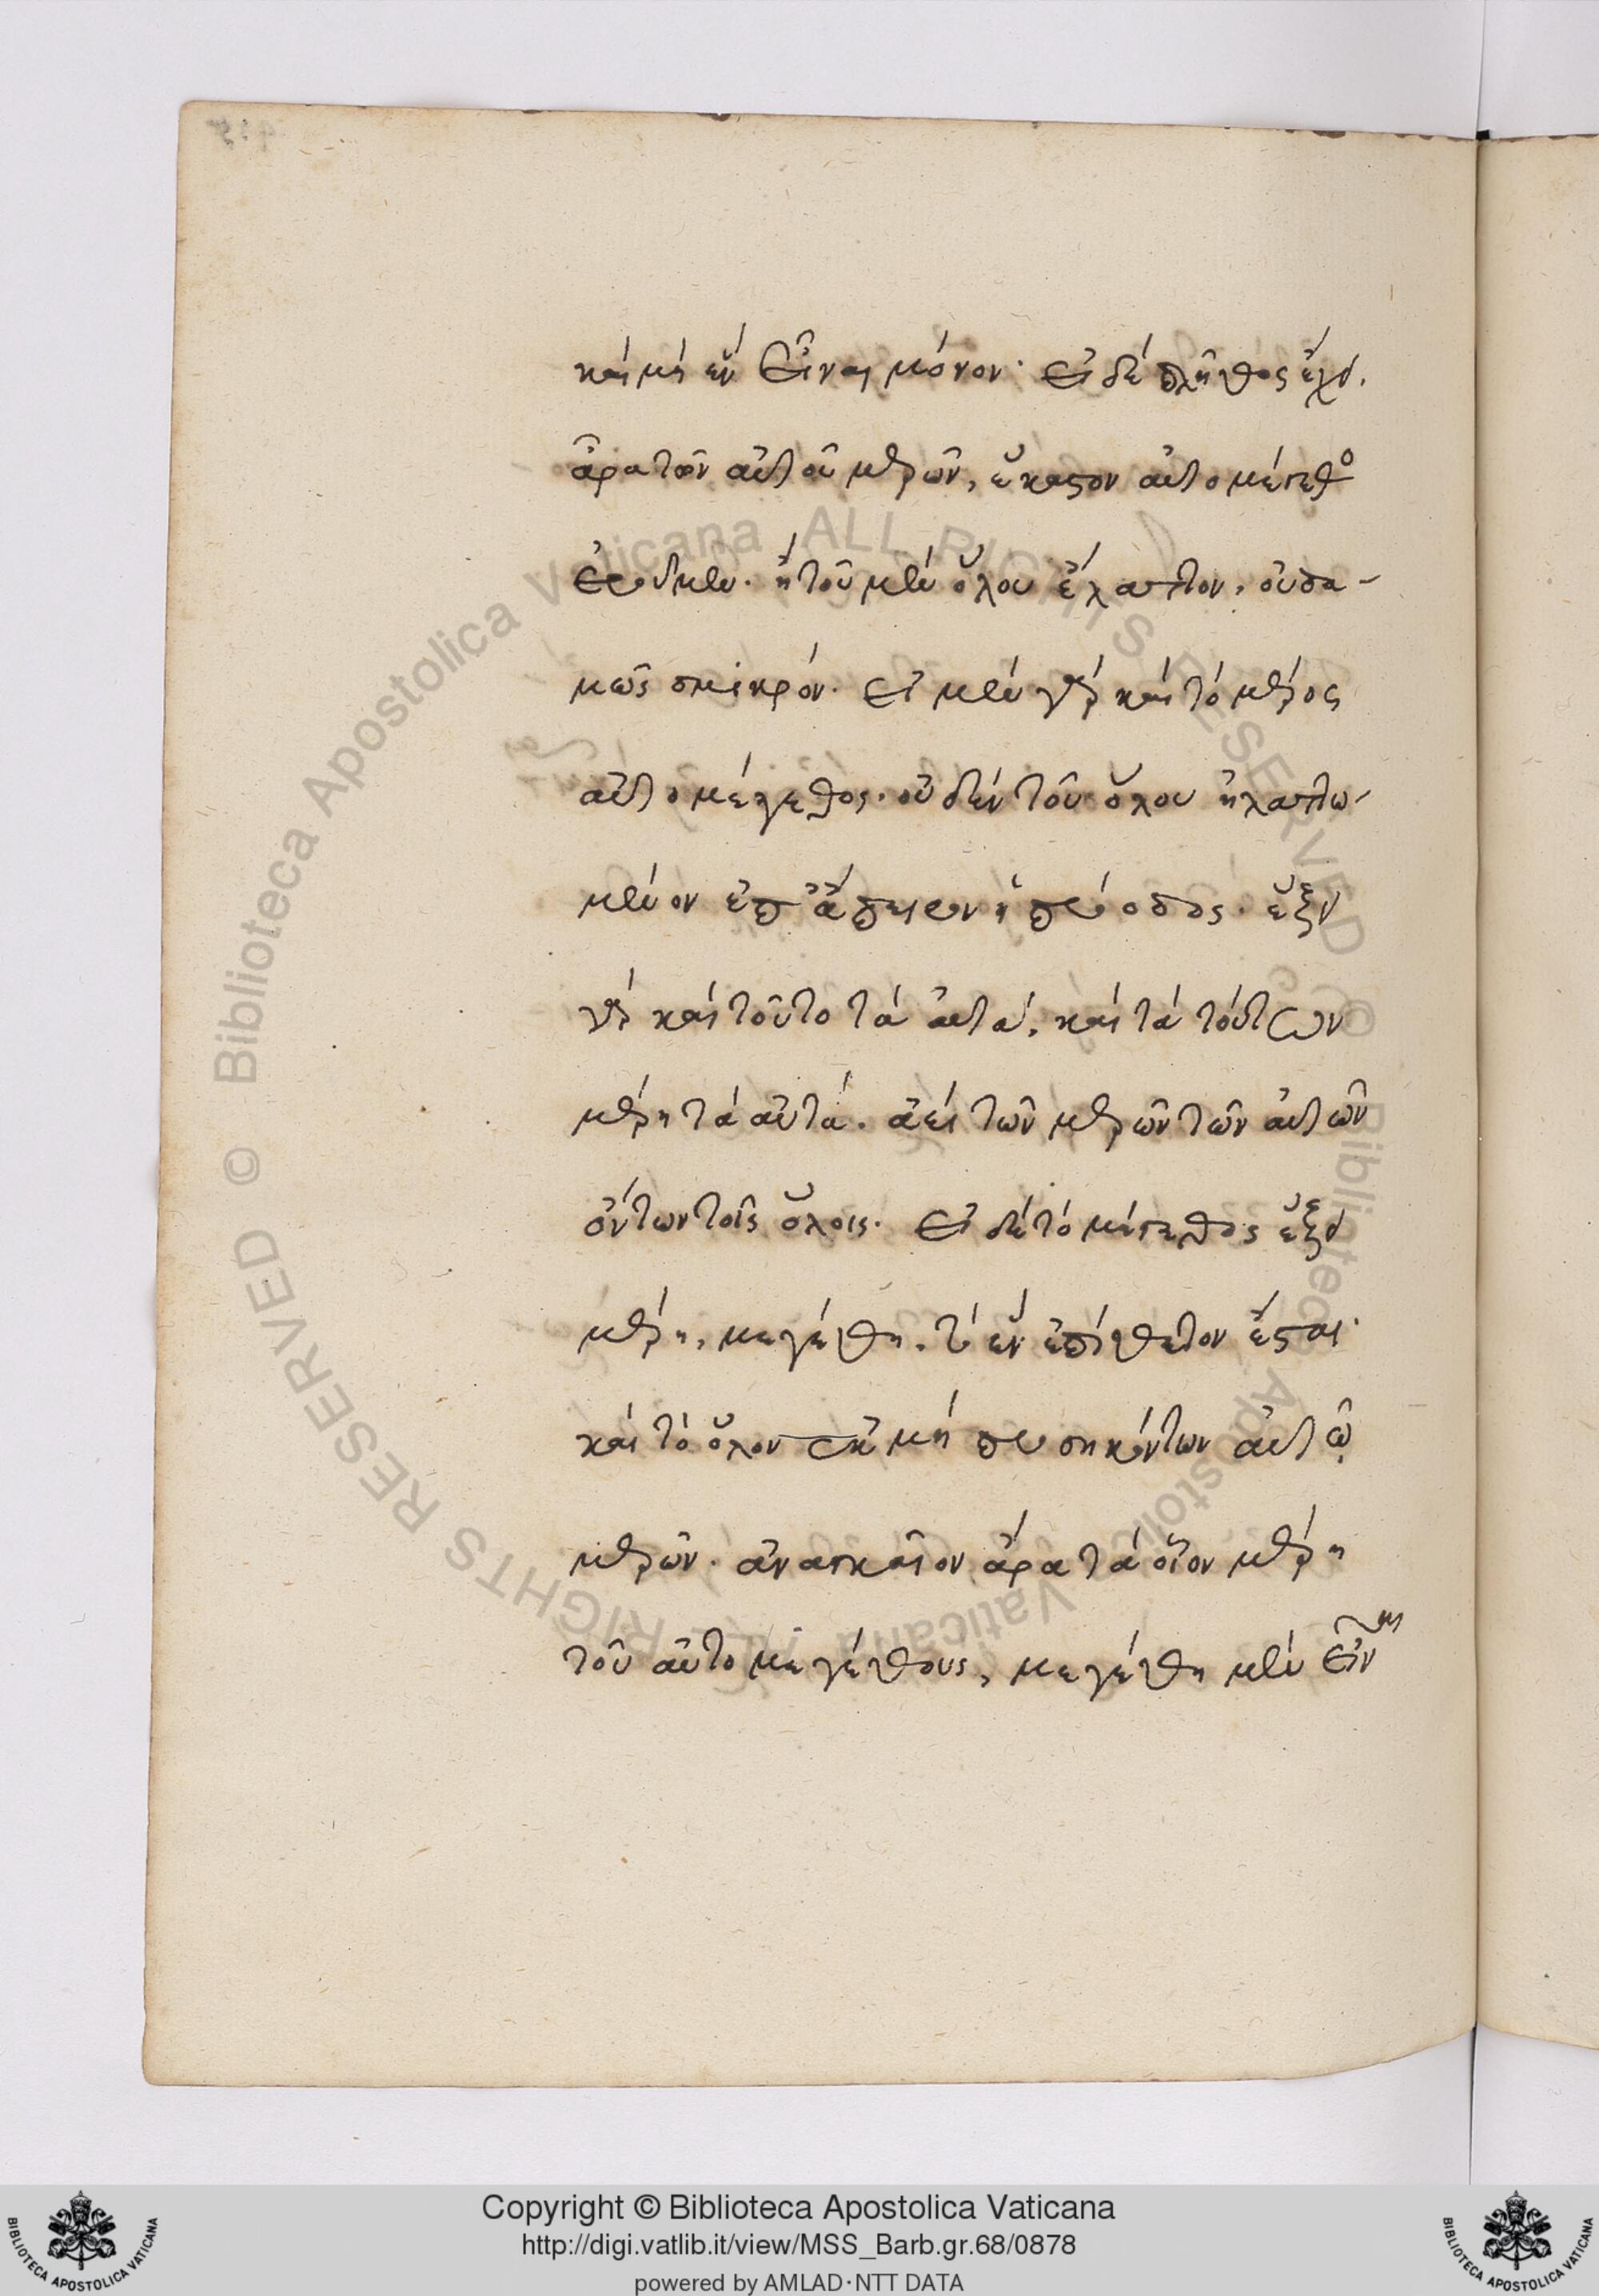 καὶ μὴ ἓν εἶναι μόνον· εἰ δὲ πλῆθος ἔχει,
ἆρα τῶν αὐτοῦ μερῶν, ἕκαστον αὐτομέγεθο
ἐροῦμεν. ἢ τοῦ μὲν ὅλου ἔλαττον, οὐδα-
μῶς σμικρόν. εἰ μὲν γὰρ καὶ τὸ μέρος
αὐτομέγεθος. οὐδὲν τοῦ ὅλου ἠλαττω-
μένον ἐπ' ἄπειρον ἡ πρόοδος. ἕξει
γὰρ καὶ τοῦτο τὰ αὐτά, καὶ τὰ τούτων
μέρη τὰ αὐτά. ἀεὶ τῶν μερῶν τῶν αὐτῶν
ὄντων τοῖς ὅλοις. εἰ δὲ τὸ μέγεθος ἕξει
μέρη, μεγέθη. τὸ ἓν ἐπίθετον ἔσται.
καὶ τὸ ὅλον ἐκ μὴ προσηκόντων αὐτῷ
μερῶν. ἀναγκαῖον ἄρα τὰ οἷον μέρη
τοῦ αὐτομεγέθους, μεγέθη μὲν εἶναι
© Biblioteca Apostolica Vaticana ALL RIGHTS RESERVED © Biblioteca Apostolica Vaticana ALL RIGHTS RESERVED
Copyright © Biblioteca Apostolica Vaticana
http://digi.vatlib.it/view/MSS_Barb.gr.68/0878
powered by AMLAD·NTT DATA
BIBLIOTECA APOSTOLICA VATICANA
BIBLIOTECA APOSTOLICA VATICANA